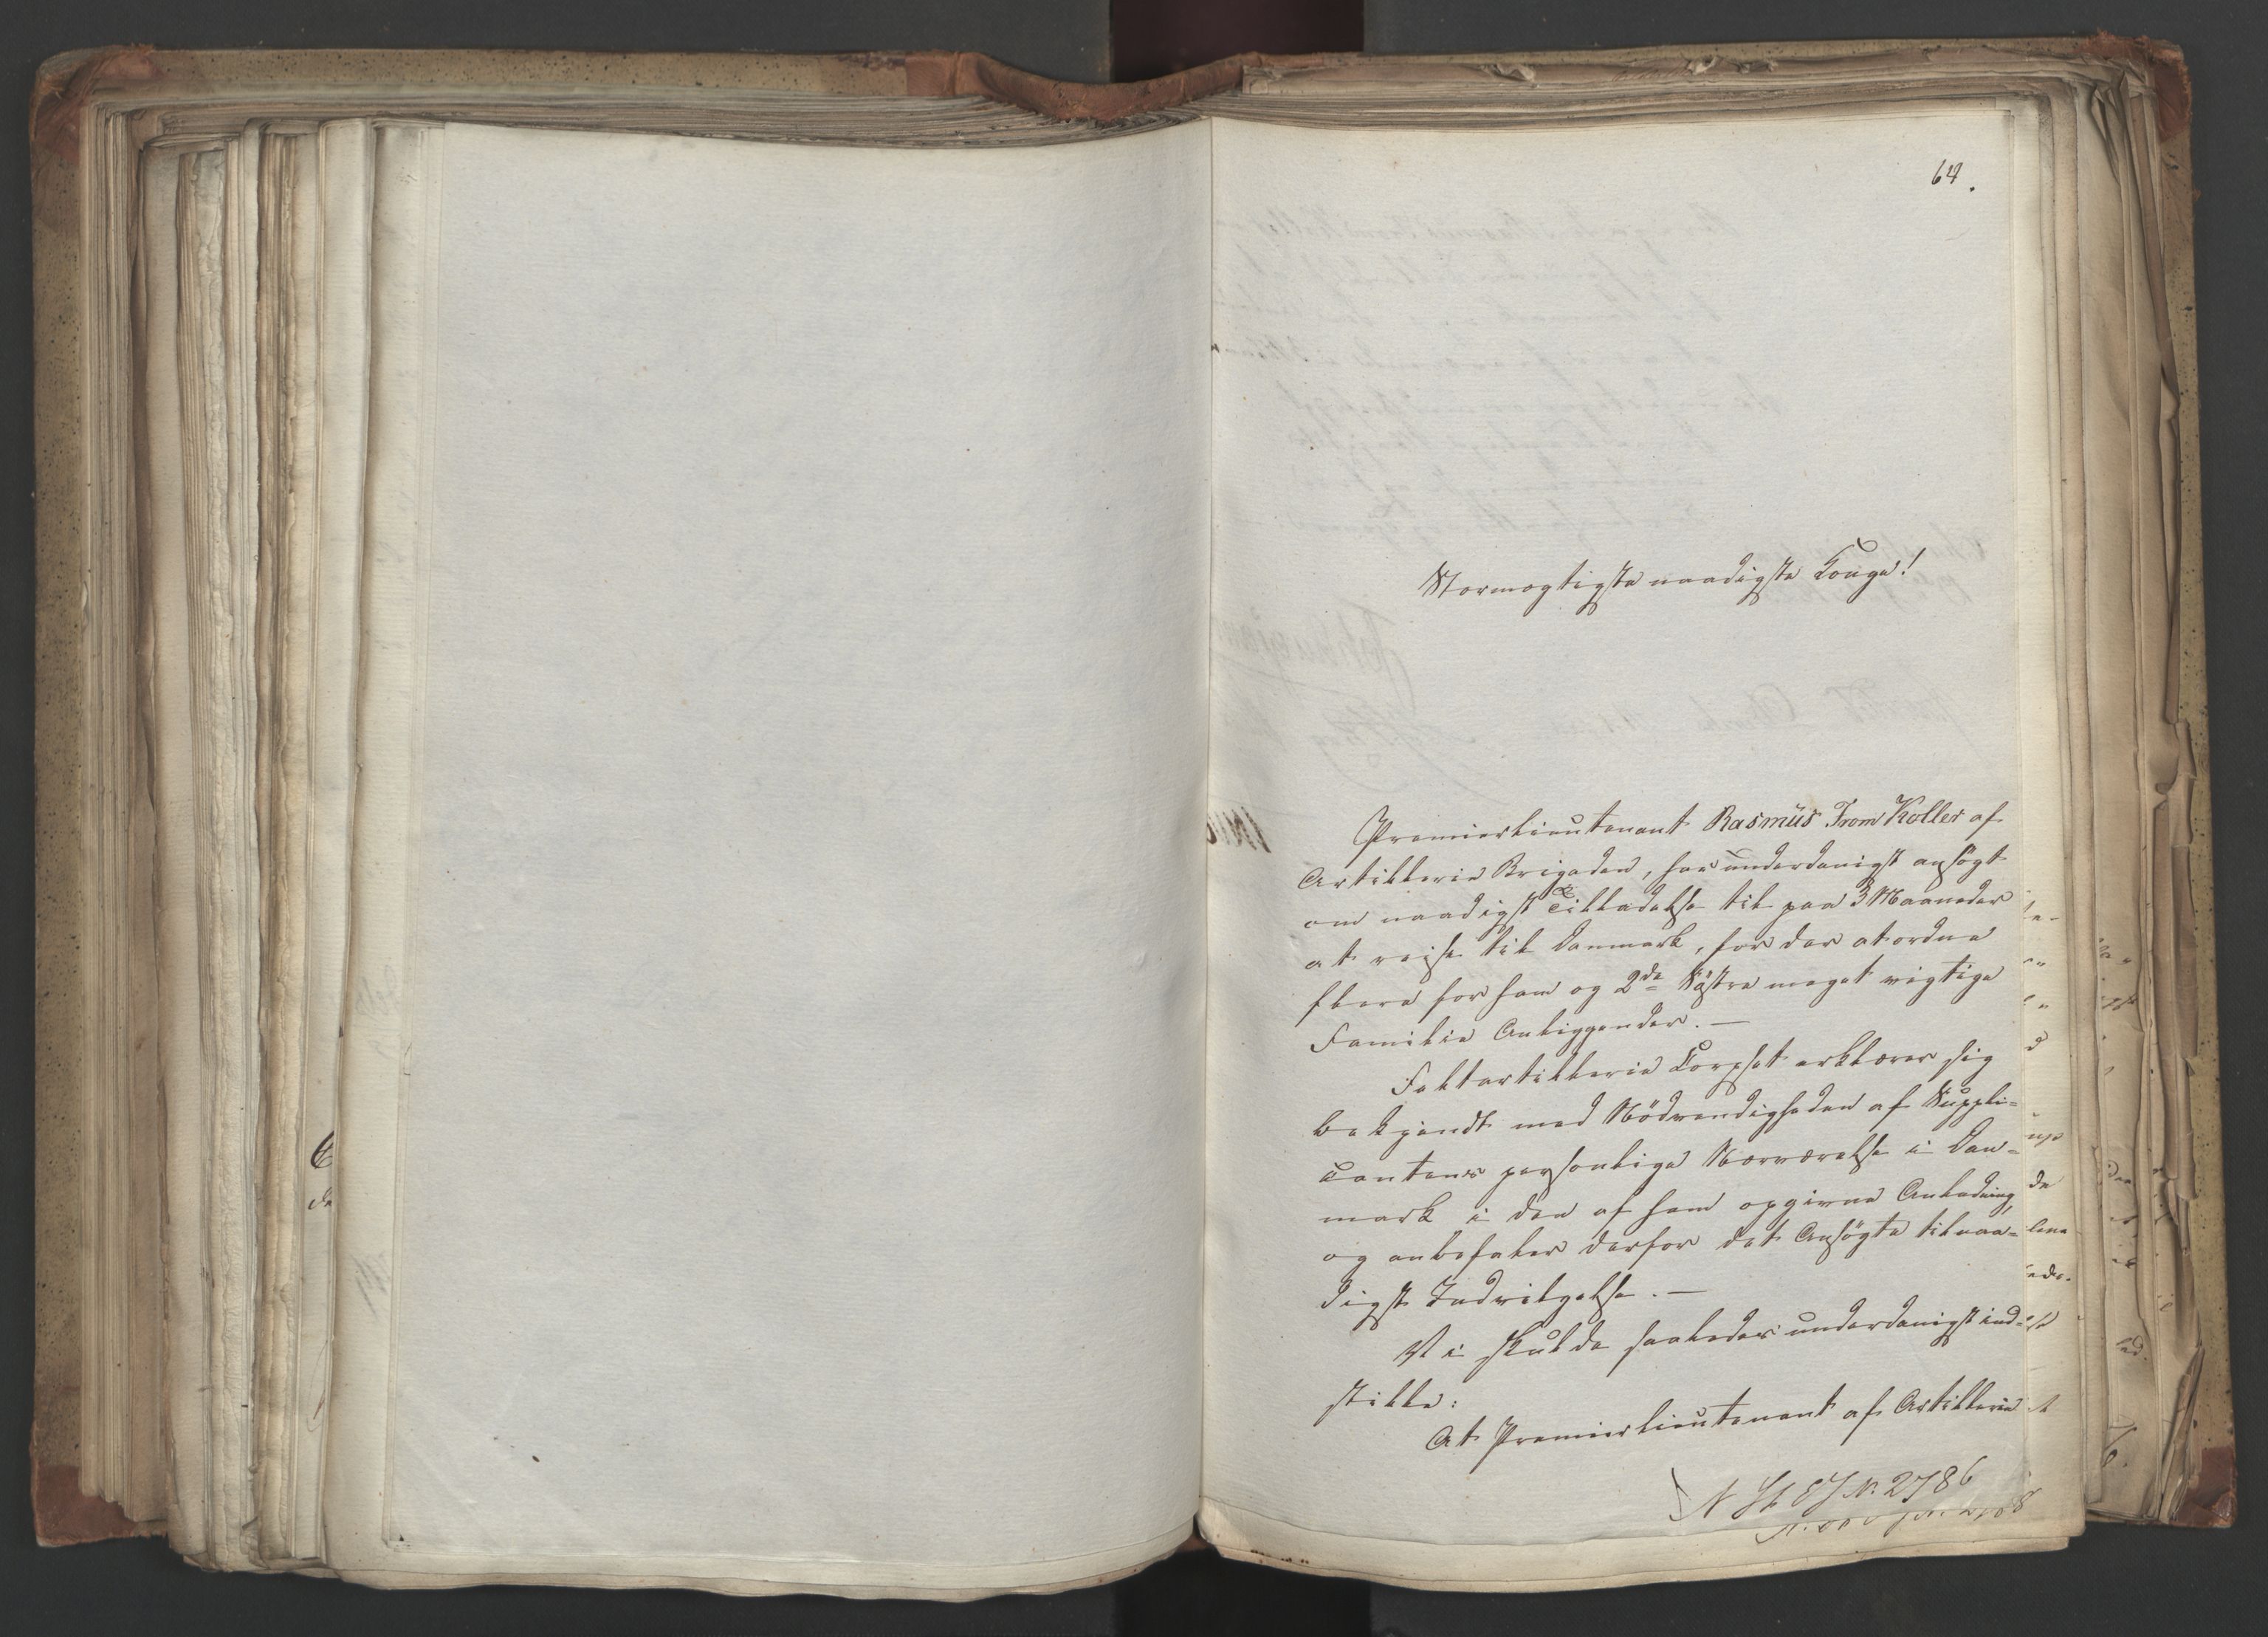 64.
Stormægtigste naadigste Konge!
Premierlieutenant Rasmus Trom Koller af
Artillerie Brigaden, har underdanigst ansøgt
om naadigst Tilladelse til paa 3 Maaneder
at reise til Danmark, for der at ordne
flere for ham og 2de Søstre meget vigtige
Familie Anliggender. —
Feltartillerie Corpset erklærer sig
bekjendt med Nödvendigheden af Suppli=
cantens personlige Nærværelse i Dan=
mark i den af ham opgivne Anledning,
og anbefaler derfor det Ansögte til naa=
digst Indvilgelse. —
Vi skulde saaledes underdanigst ind=
stille:
At Premierlieutenant af Artillerie
N St EJ N. 2786